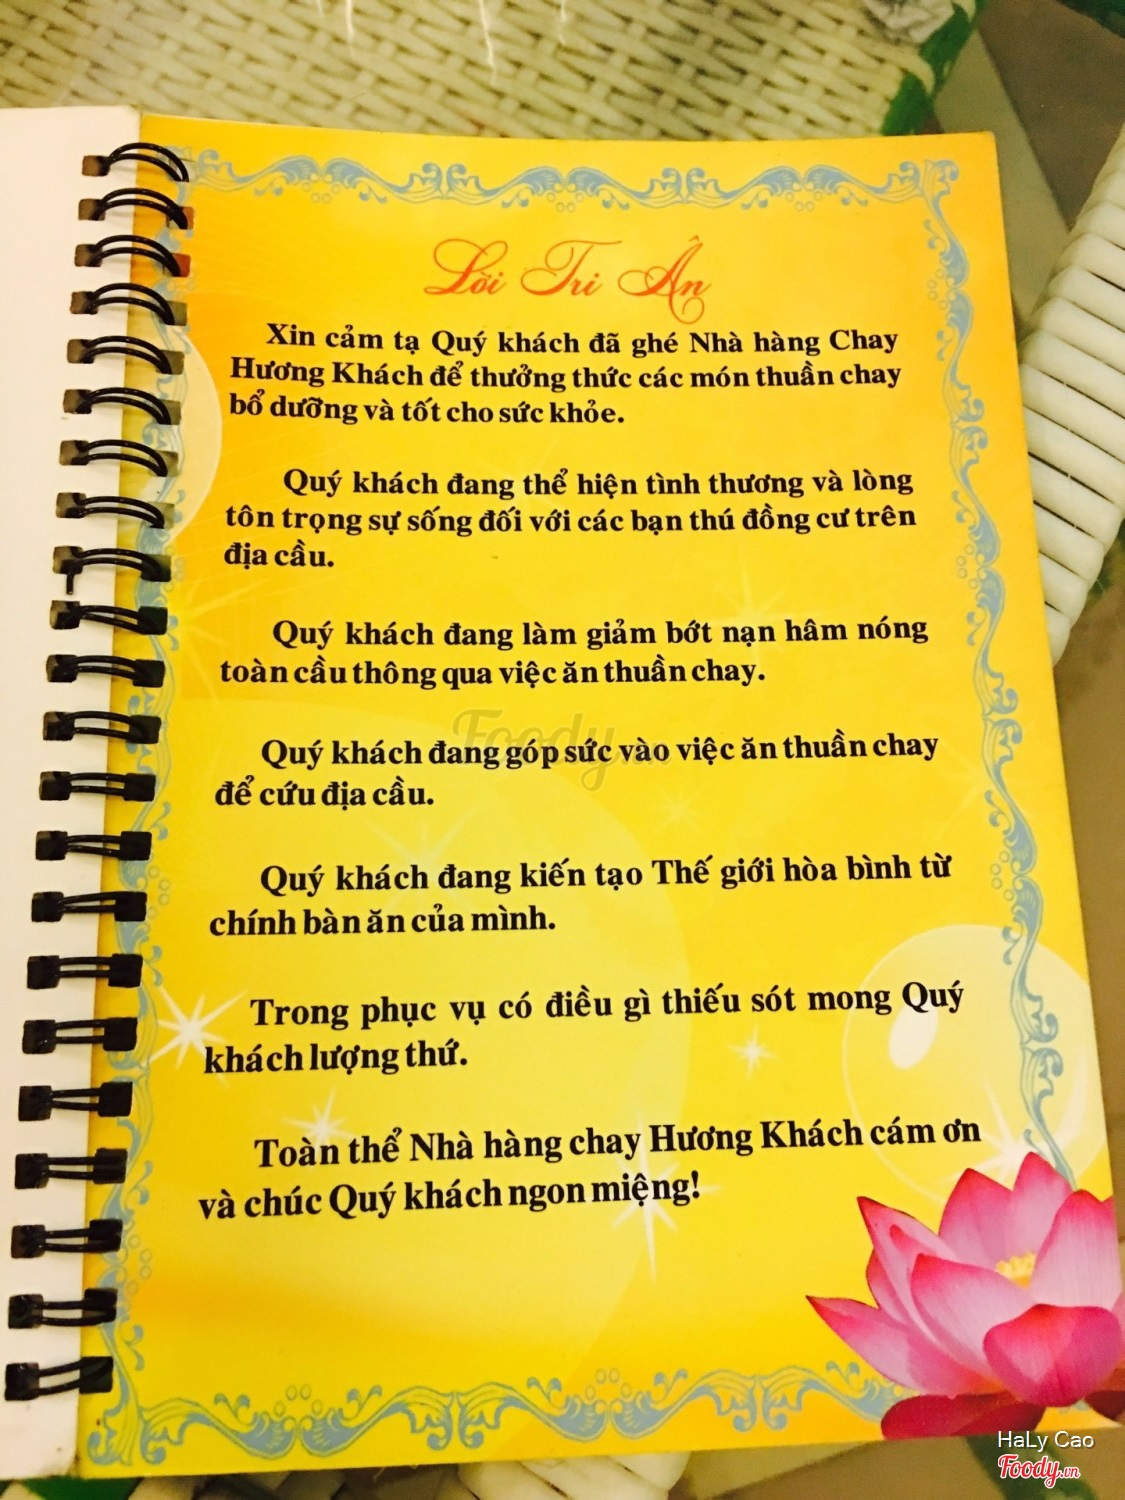 Lời Tri Ân
Xin cảm tạ Quý khách đã ghé Nhà hàng Chay
Hương Khách để thưởng thức các món thuần chay
bổ dưỡng và tốt cho sức khỏe.
Quý khách đang thể hiện tình thương và lòng
tôn trọng sự sống đối với các bạn thú đồng cư trên
địa cầu.
Quý khách đang làm giảm bớt nạn hâm nóng
toàn cầu thông qua việc ăn thuần chay.
Foody.vn
Quý khách đang góp sức vào việc ăn thuần chay
để cứu địa cầu.
Quý khách đang kiến tạo Thế giới hòa bình từ
chính bàn ăn của mình.
Trong phục vụ có điều gì thiếu sót mong Quý
khách lượng thứ.
Toàn thể Nhà hàng chay Hương Khách cám ơn
và chúc Quý khách ngon miệng!
HaLy Cao
Foody.vn